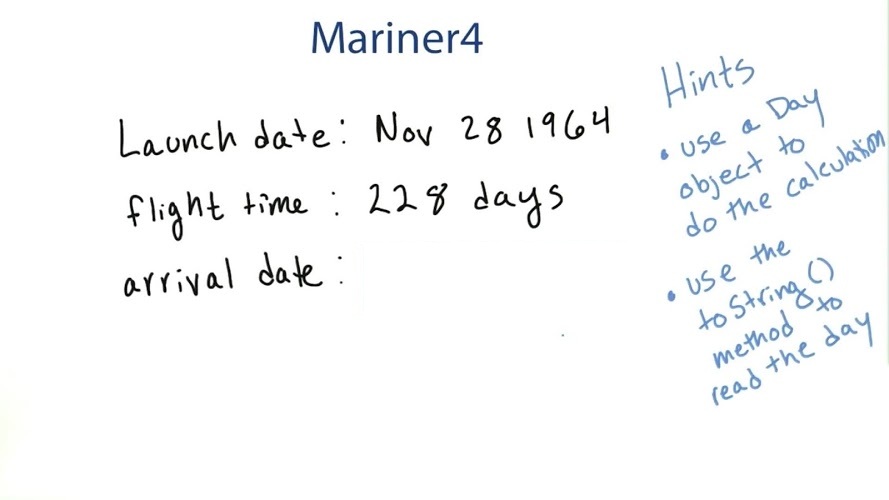 Mariner4
Launch date: Nov 28 1964
flight time: 228 days
arrival date:
Hints
• use a Day
object to
do the calculation
• use the
toString()
method to
read the day